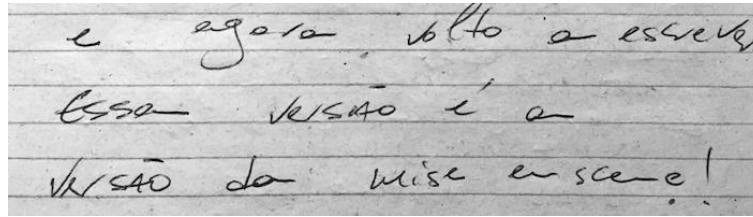 e agora volto a escrever
Essa versão é a
versão da mise en scene!